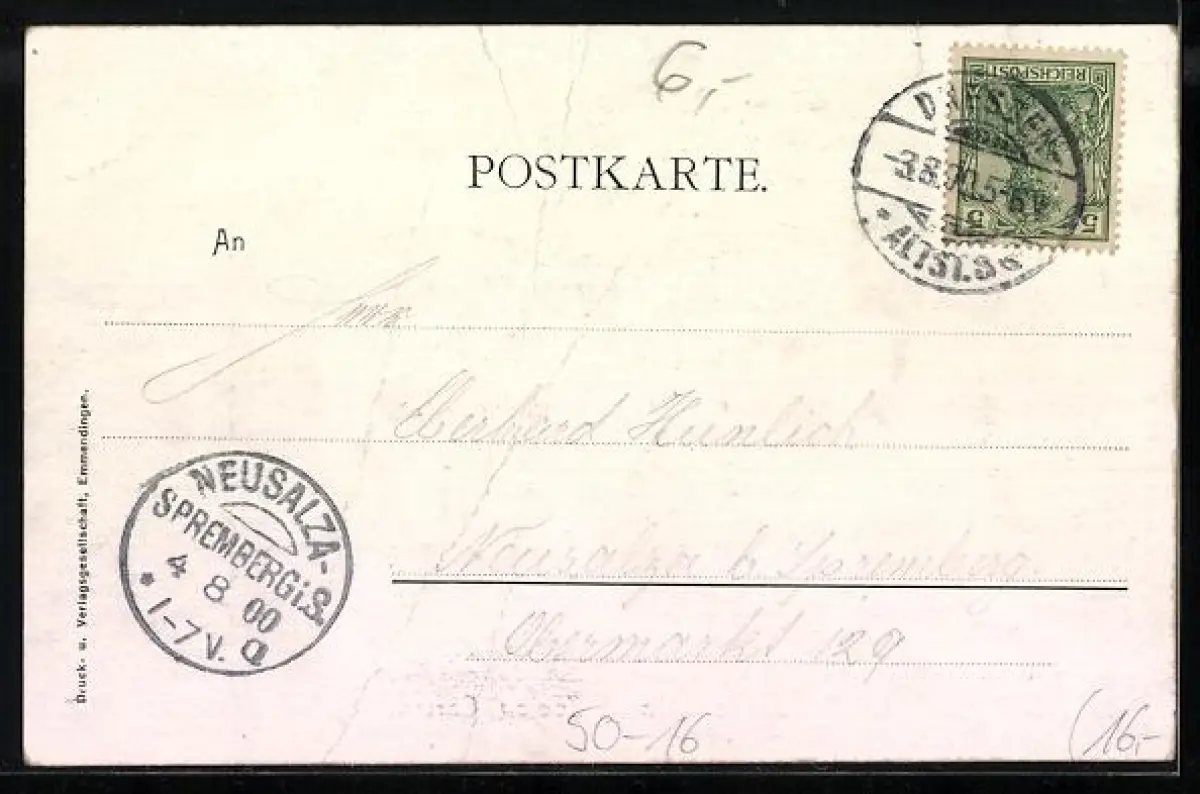 6,-
REICHSPOST
5 5
DRESDEN-
-3.8.00.5-6N
* ALTST.
POSTKARTE.
An
Eberhard Hünlich
Neusalza b Spremberg.
Obermarkt 129
NEUSALZA-
SPREMBERG i.S.
4 8 00
* 1-7 V. a
Druck- u. Verlagsgesellschaft, Emmendingen.
50-16
(16,-